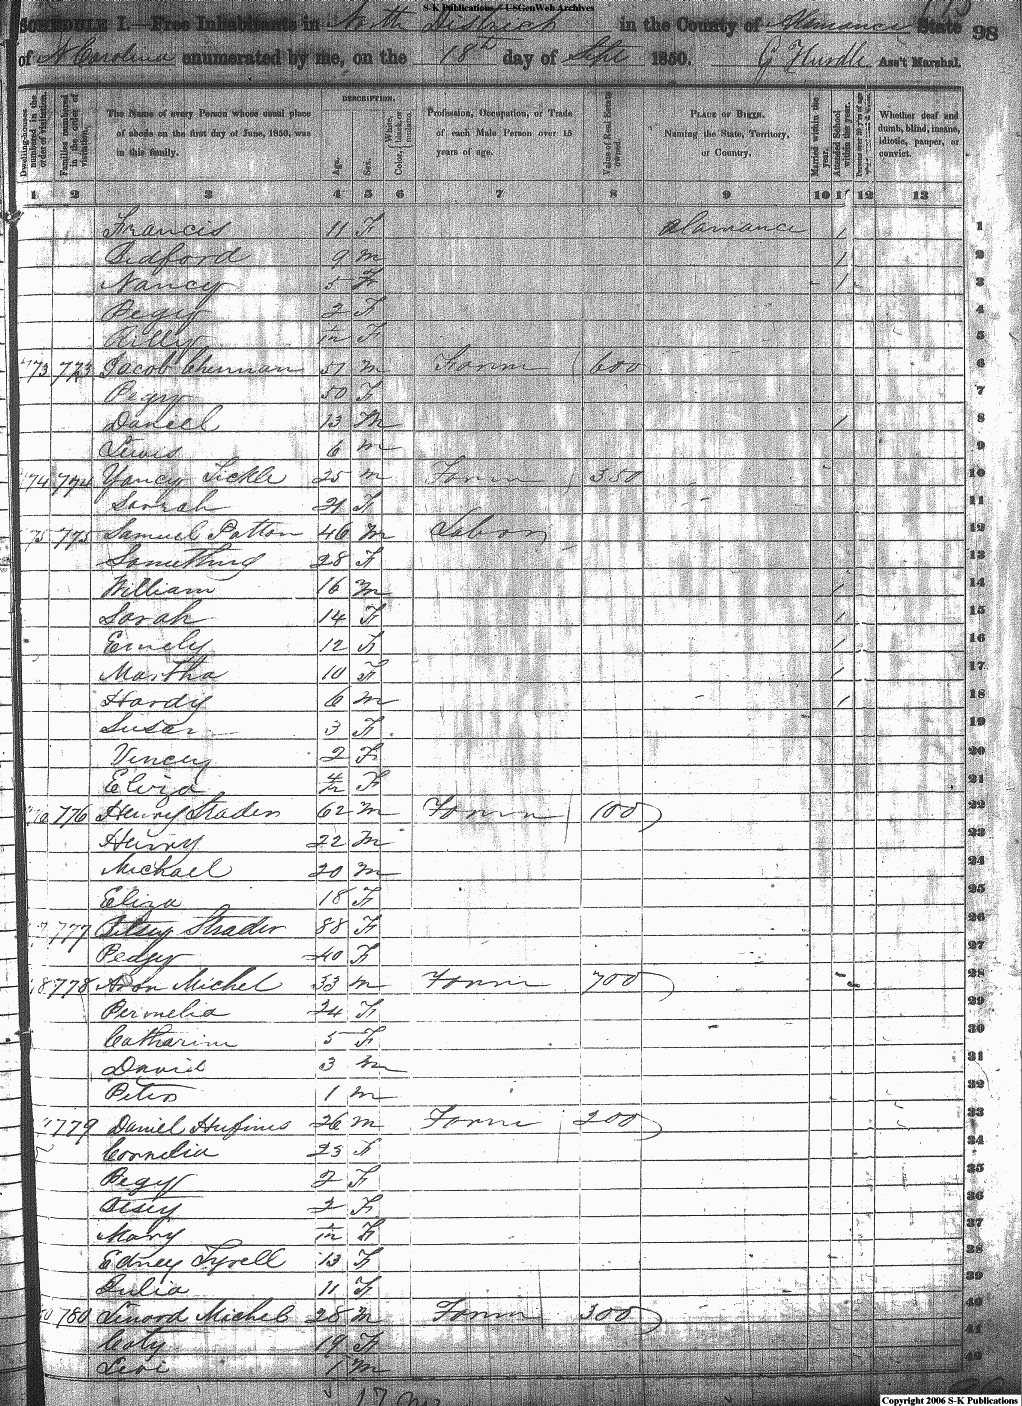 S-K Publications - USGenWeb Archives
SCHEDULE I.—Free Inhabitants in North District in the County of Alamance State 98
of N Carolina enumerated by me, on the 18th day of Sept 1850. G Hurdle Ass't Marshal.
Dwelling-houses numbered in the order of visitation.
Families numbered in the order of visitation.
The Name of every Person whose usual place of abode on the first day of June, 1850, was in this family.
DESCRIPTION.
Age.
Sex.
White, black, or mulatto.
Color,
Profession, Occupation, or Trade of each Male Person over 15 years of age.
Value of Real Estate owned.
PLACE OF BIRTH. Naming the State, Territory, or Country.
Married within the year.
Attended School within the year.
Whether deaf and dumb, blind, insane, idiotic, pauper, or convict.
1 2 3 4 5 6 7 8 9 10 11 12 13
Francis 11 F Alamance 1 1
Bedford 9 m 1 2
Nancy 5 F 1 3
Pegy 2 F 4
F 5
773 Jacob 51 m Farm 600 6
Pegy 50 F 7
Daniel 13 m 1 8
Lewis 6 m 9
774 Yancy Tickle 25 m Farm 350 10
Sarah 21 F 11
775 Samuel Patton 46 m Labor 12
Something 28 F 13
William 16 m 1 14
Sarah 14 F 1 15
Emely 12 F 1 16
Martha 10 F 1 17
Hardy 6 m 1 18
Susan 3 F 19
Vincey 2 F 20
Eliza 4/12 F 21
776 Henry Strader 62 m Farm 100 22
Henry 22 m 23
Michael 20 m 24
Eliza 18 F 25
777 Betsey Strader 88 F 26
Pedgy 40 F 27
778 Aron Michel 33 m Farm 700 28
Permelia 24 F 29
Catharine 5 F 30
David 3 m 31
Peter 1 m 32
779 Daniel Hufines 26 m Farm 200 33
Cornelia 23 F 34
Pegy 2 F 35
Betsey 2 F 36
Mary F 37
Edney Tyrell 13 F 38
Julia 11 F 39
780 Linord Michel 28 m Farm 300 40
Caty 19 F 41
Levi 1 m 42
17
Copyright 2006 S-K Publications